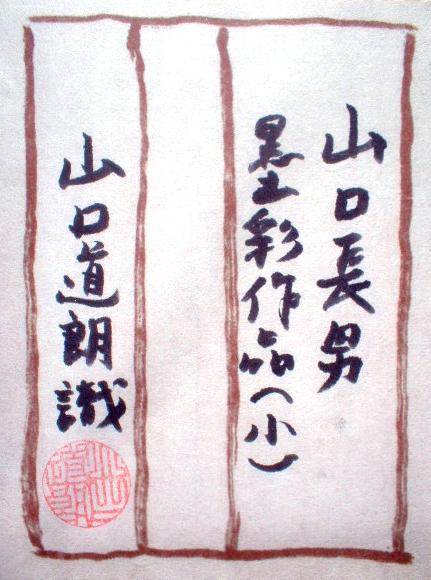 山口長男
墨彩作品(小)
山口道朗識